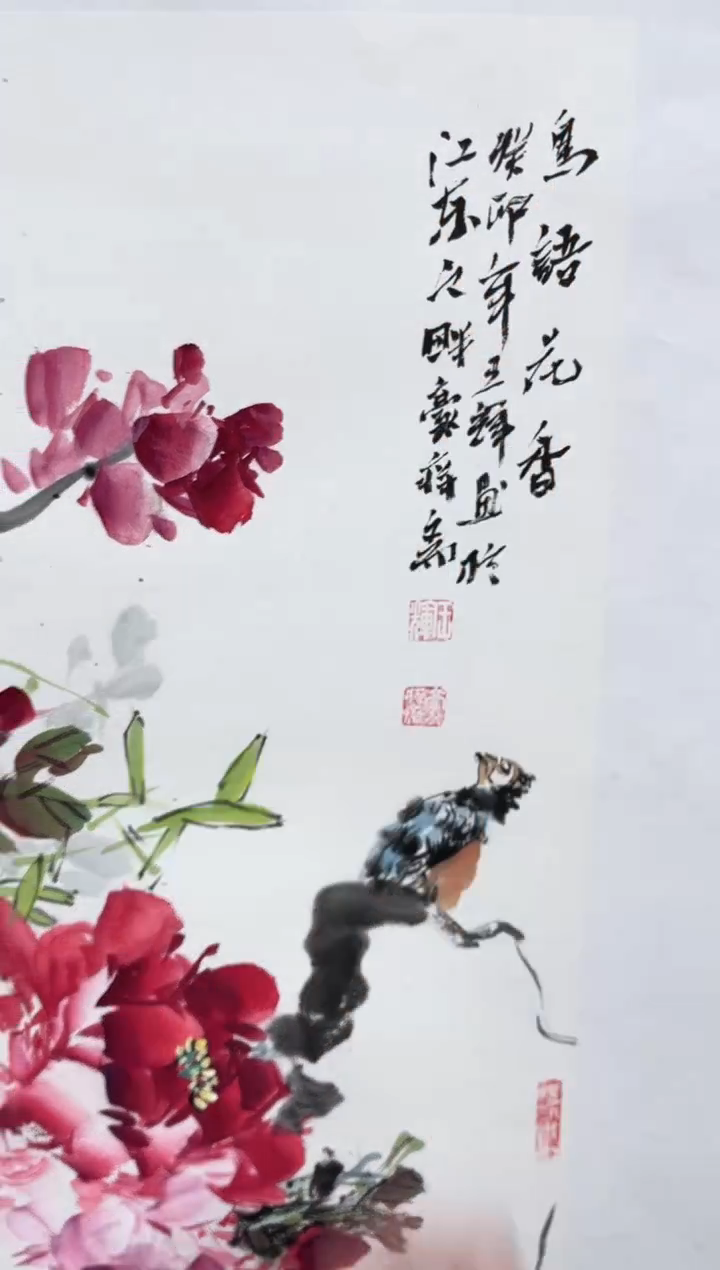 鳥語花香
癸卯年王輝畫於
江东之畔豪
王輝